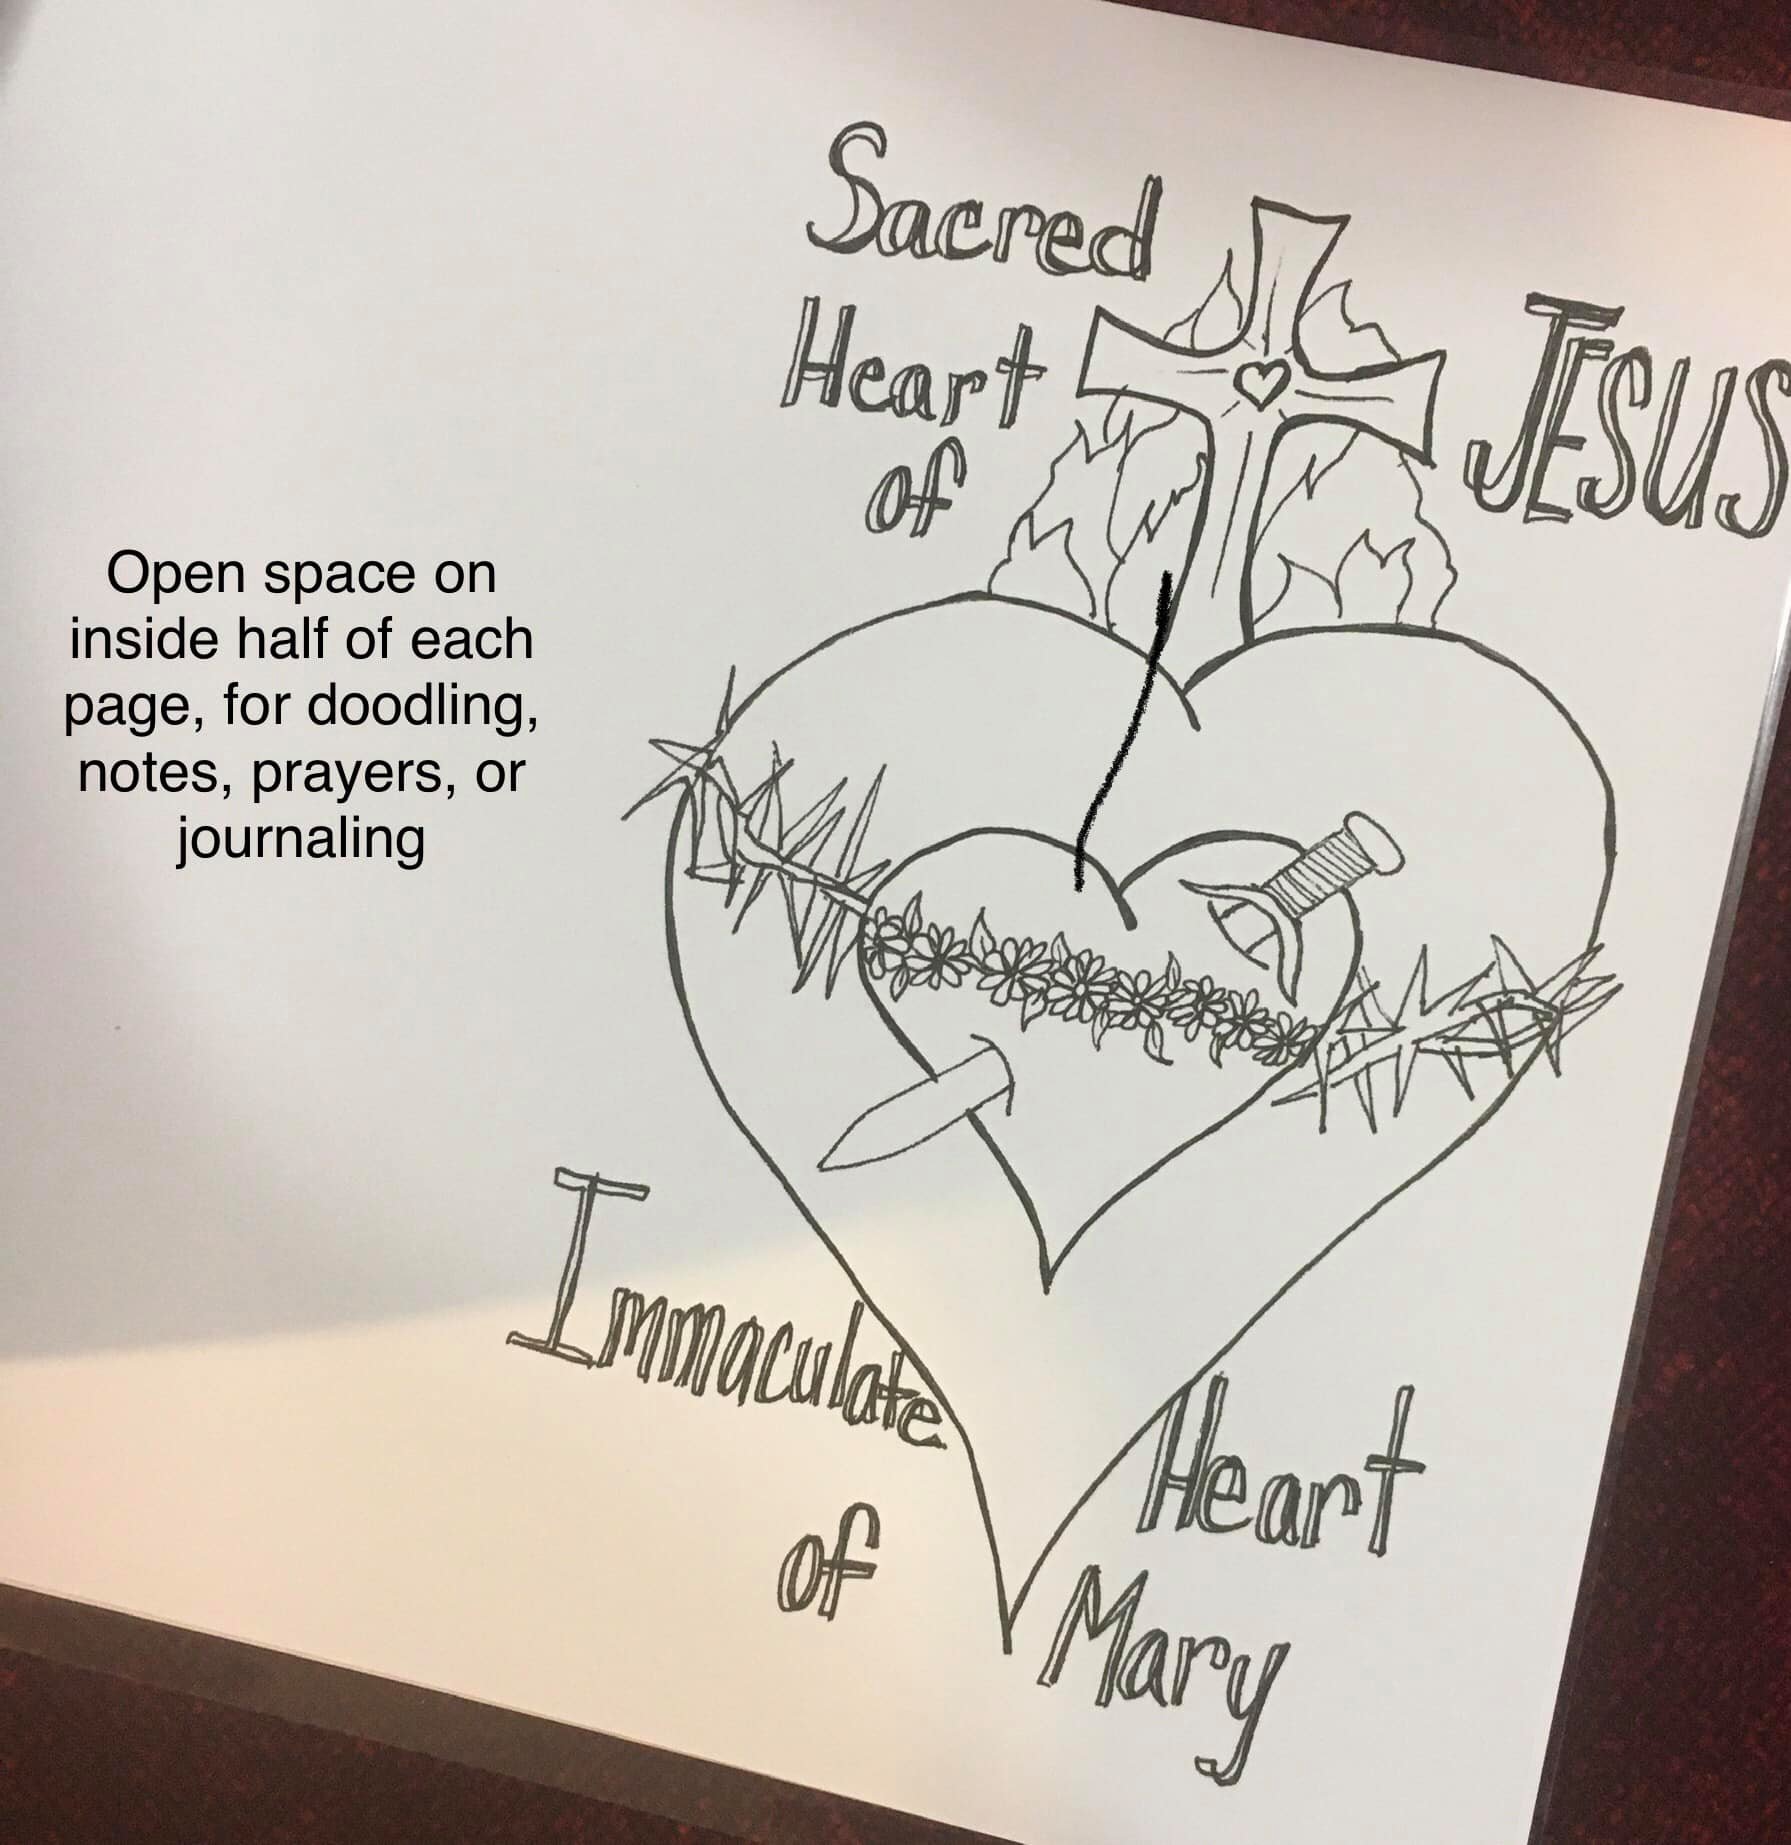 Sacred
Heart
of
JESUS
Open space on
inside half of each
page, for doodling,
notes, prayers, or
journaling
Immaculate
Heart
of
Mary